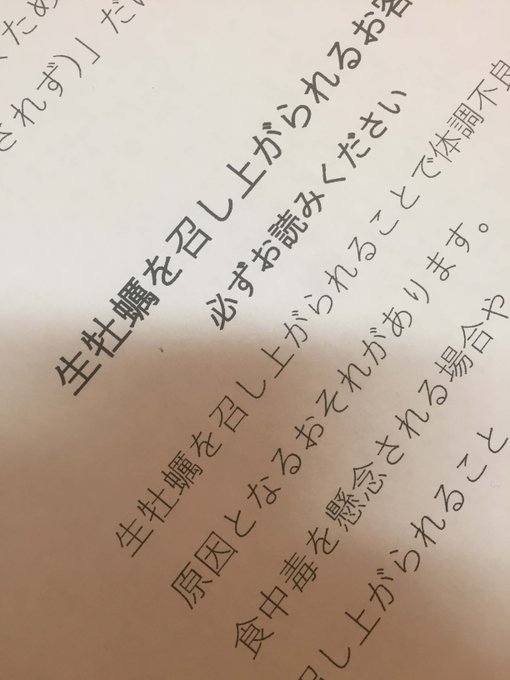 ため
されず)」だい
生牡蠣を召し上がられるお客
必ずお読みください
生牡蠣を召し上がられることで体調不良
原因となるおそれがあります。
食中毒を懸念される場合や
召し上がられること